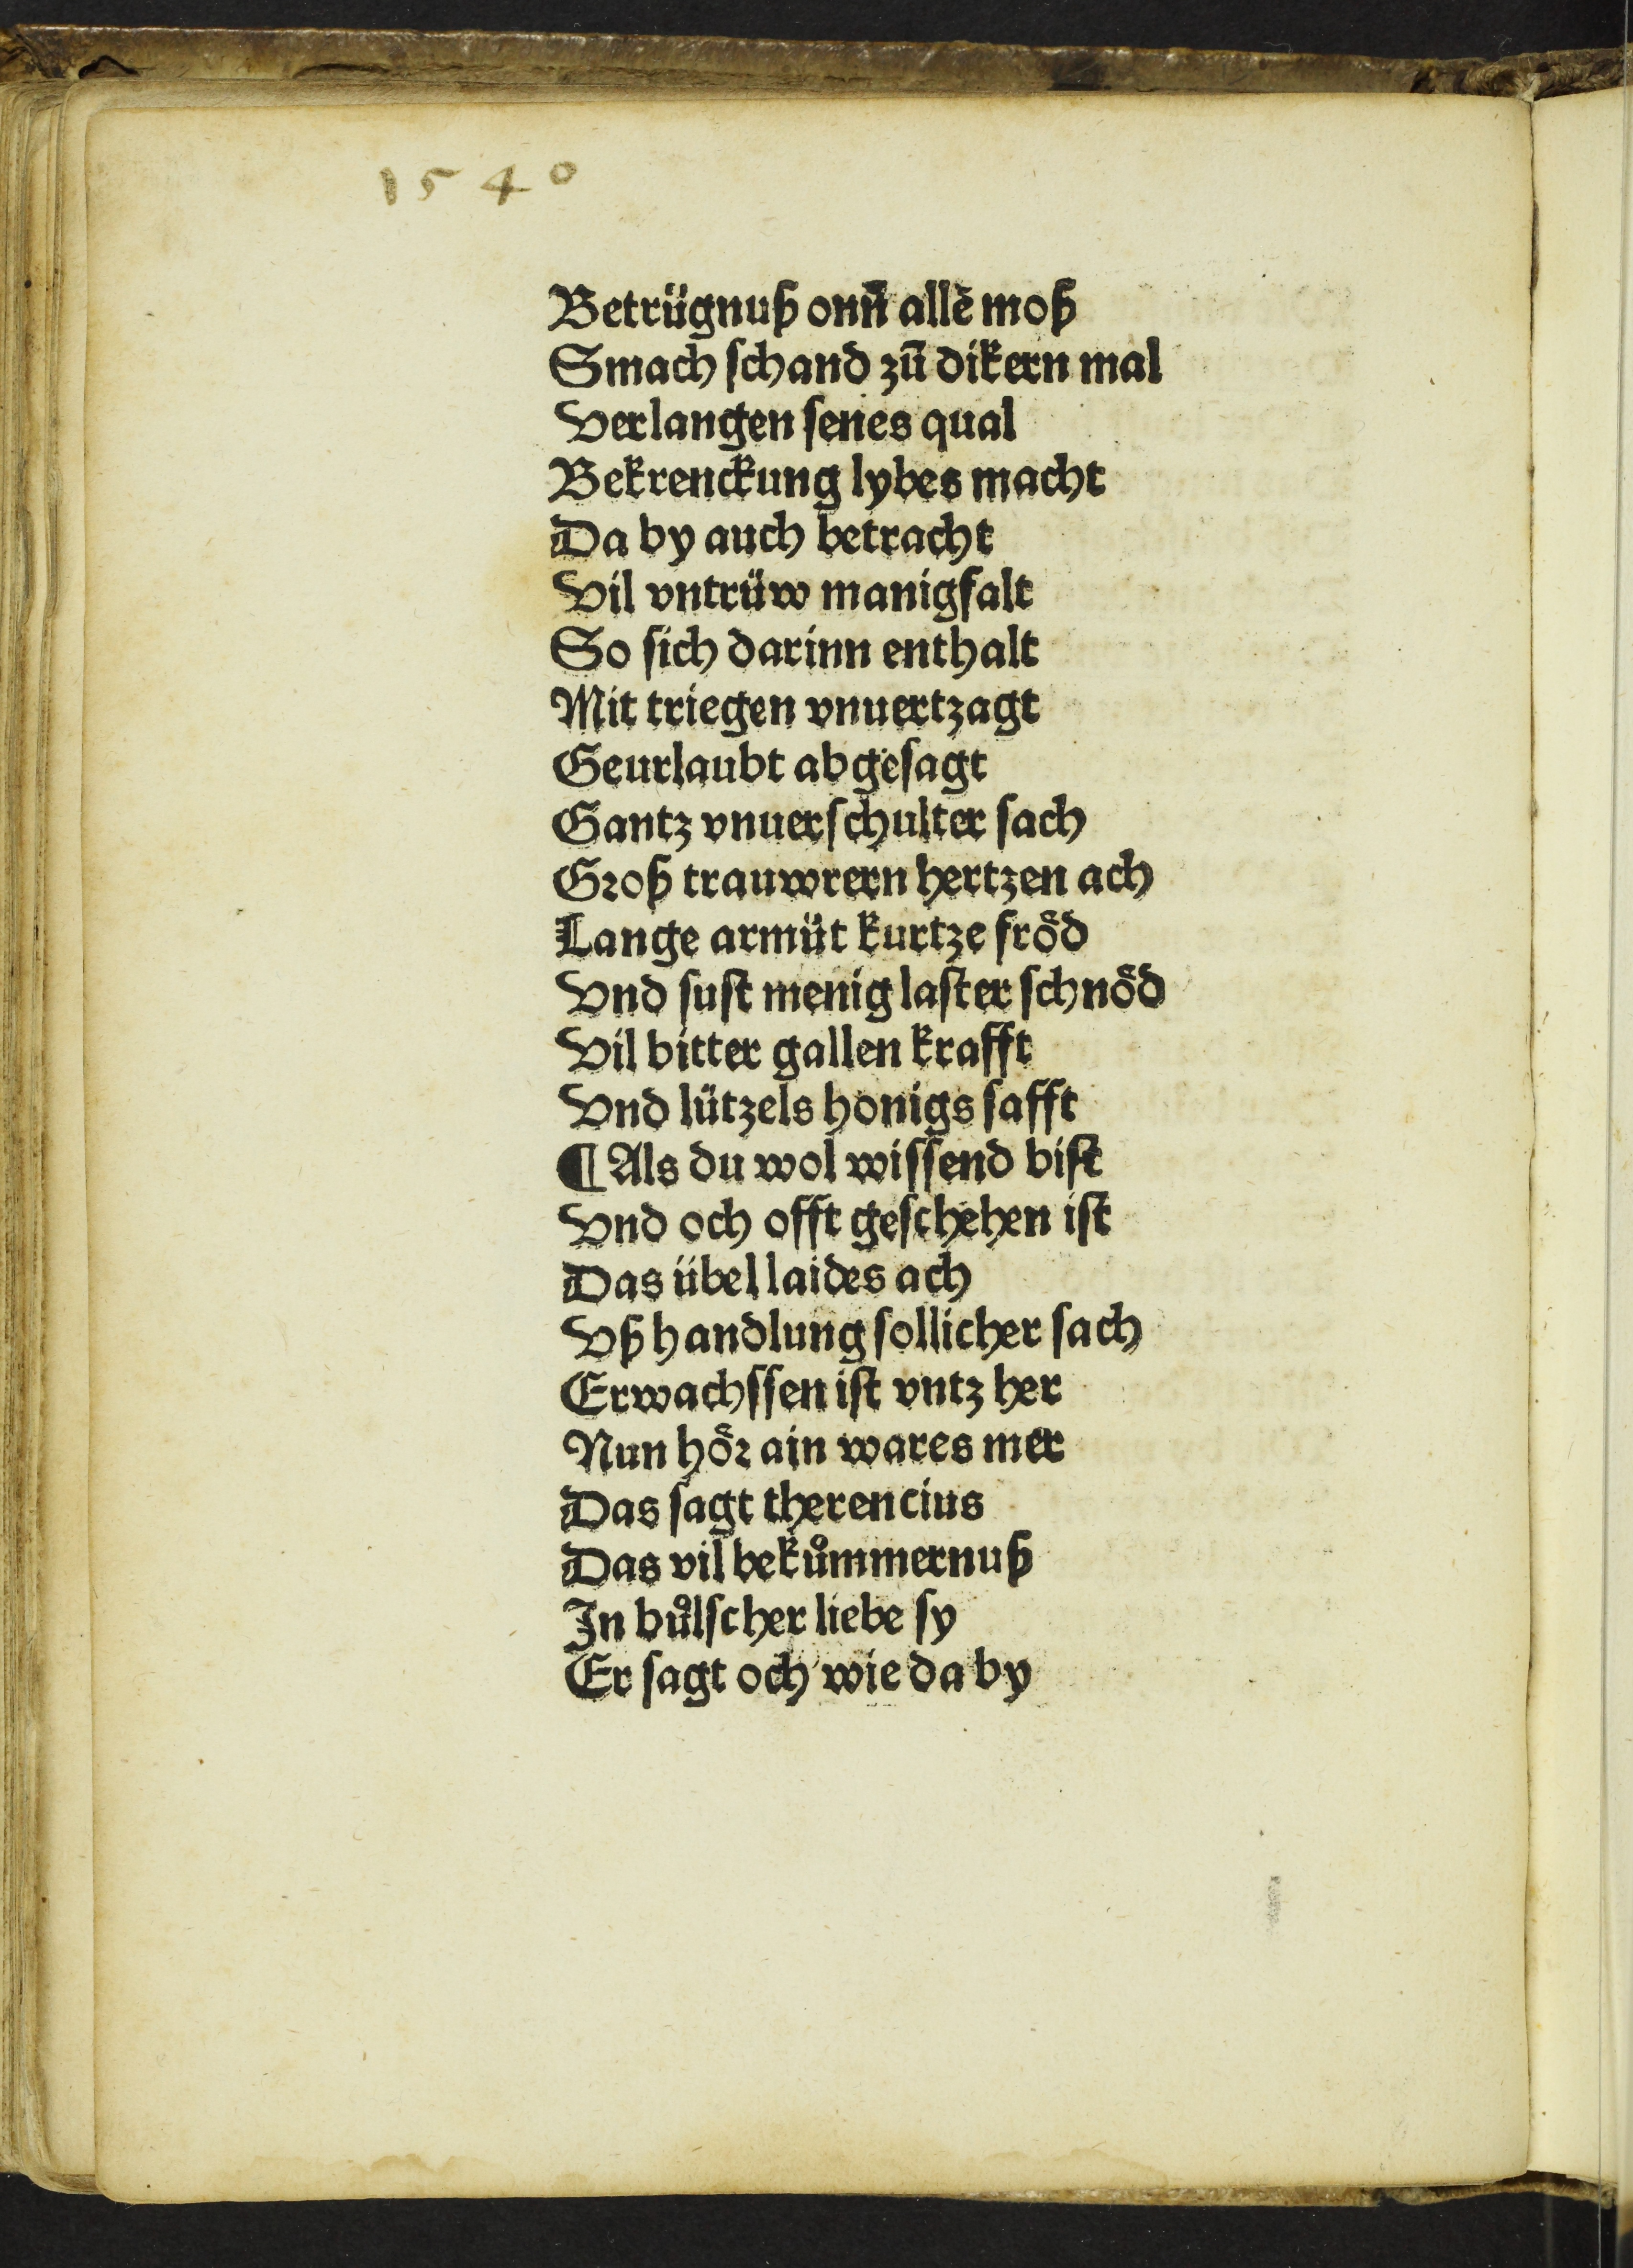 1540
Betrügnuß onn̄ allē moß
Smach ſchand zū dikern mal
Verlangen ſenes qual
Bekrenckung lybes macht
Da by auch betracht
Vil vntrüw manigfalt
So ſich darinn enthalt
Mit triegen vnuertzagt
Geurlaubt abgeſagt
Gantz vnuerſchulter ſach
Groß trauwrern hertzen ach
Lange armüt kurtze frȯ̈d
Vnd ſuſt menig laſter ſchnȯ̈d
Vil bitter gallen krafft
Vnd lützels honigs ſafft
¶ Als du wol wiſſend biſt
Vnd och offt geſchehen iſt
Das übel laides ach
Vß handlung ſollicher ſach
Erwachſſen iſt vntz her
Nun hoͤr ain wares mer
Das ſagt therencius
Das vil bekůmmernuß
In bůlſcher liebe ſy
Er ſagt och wie da by